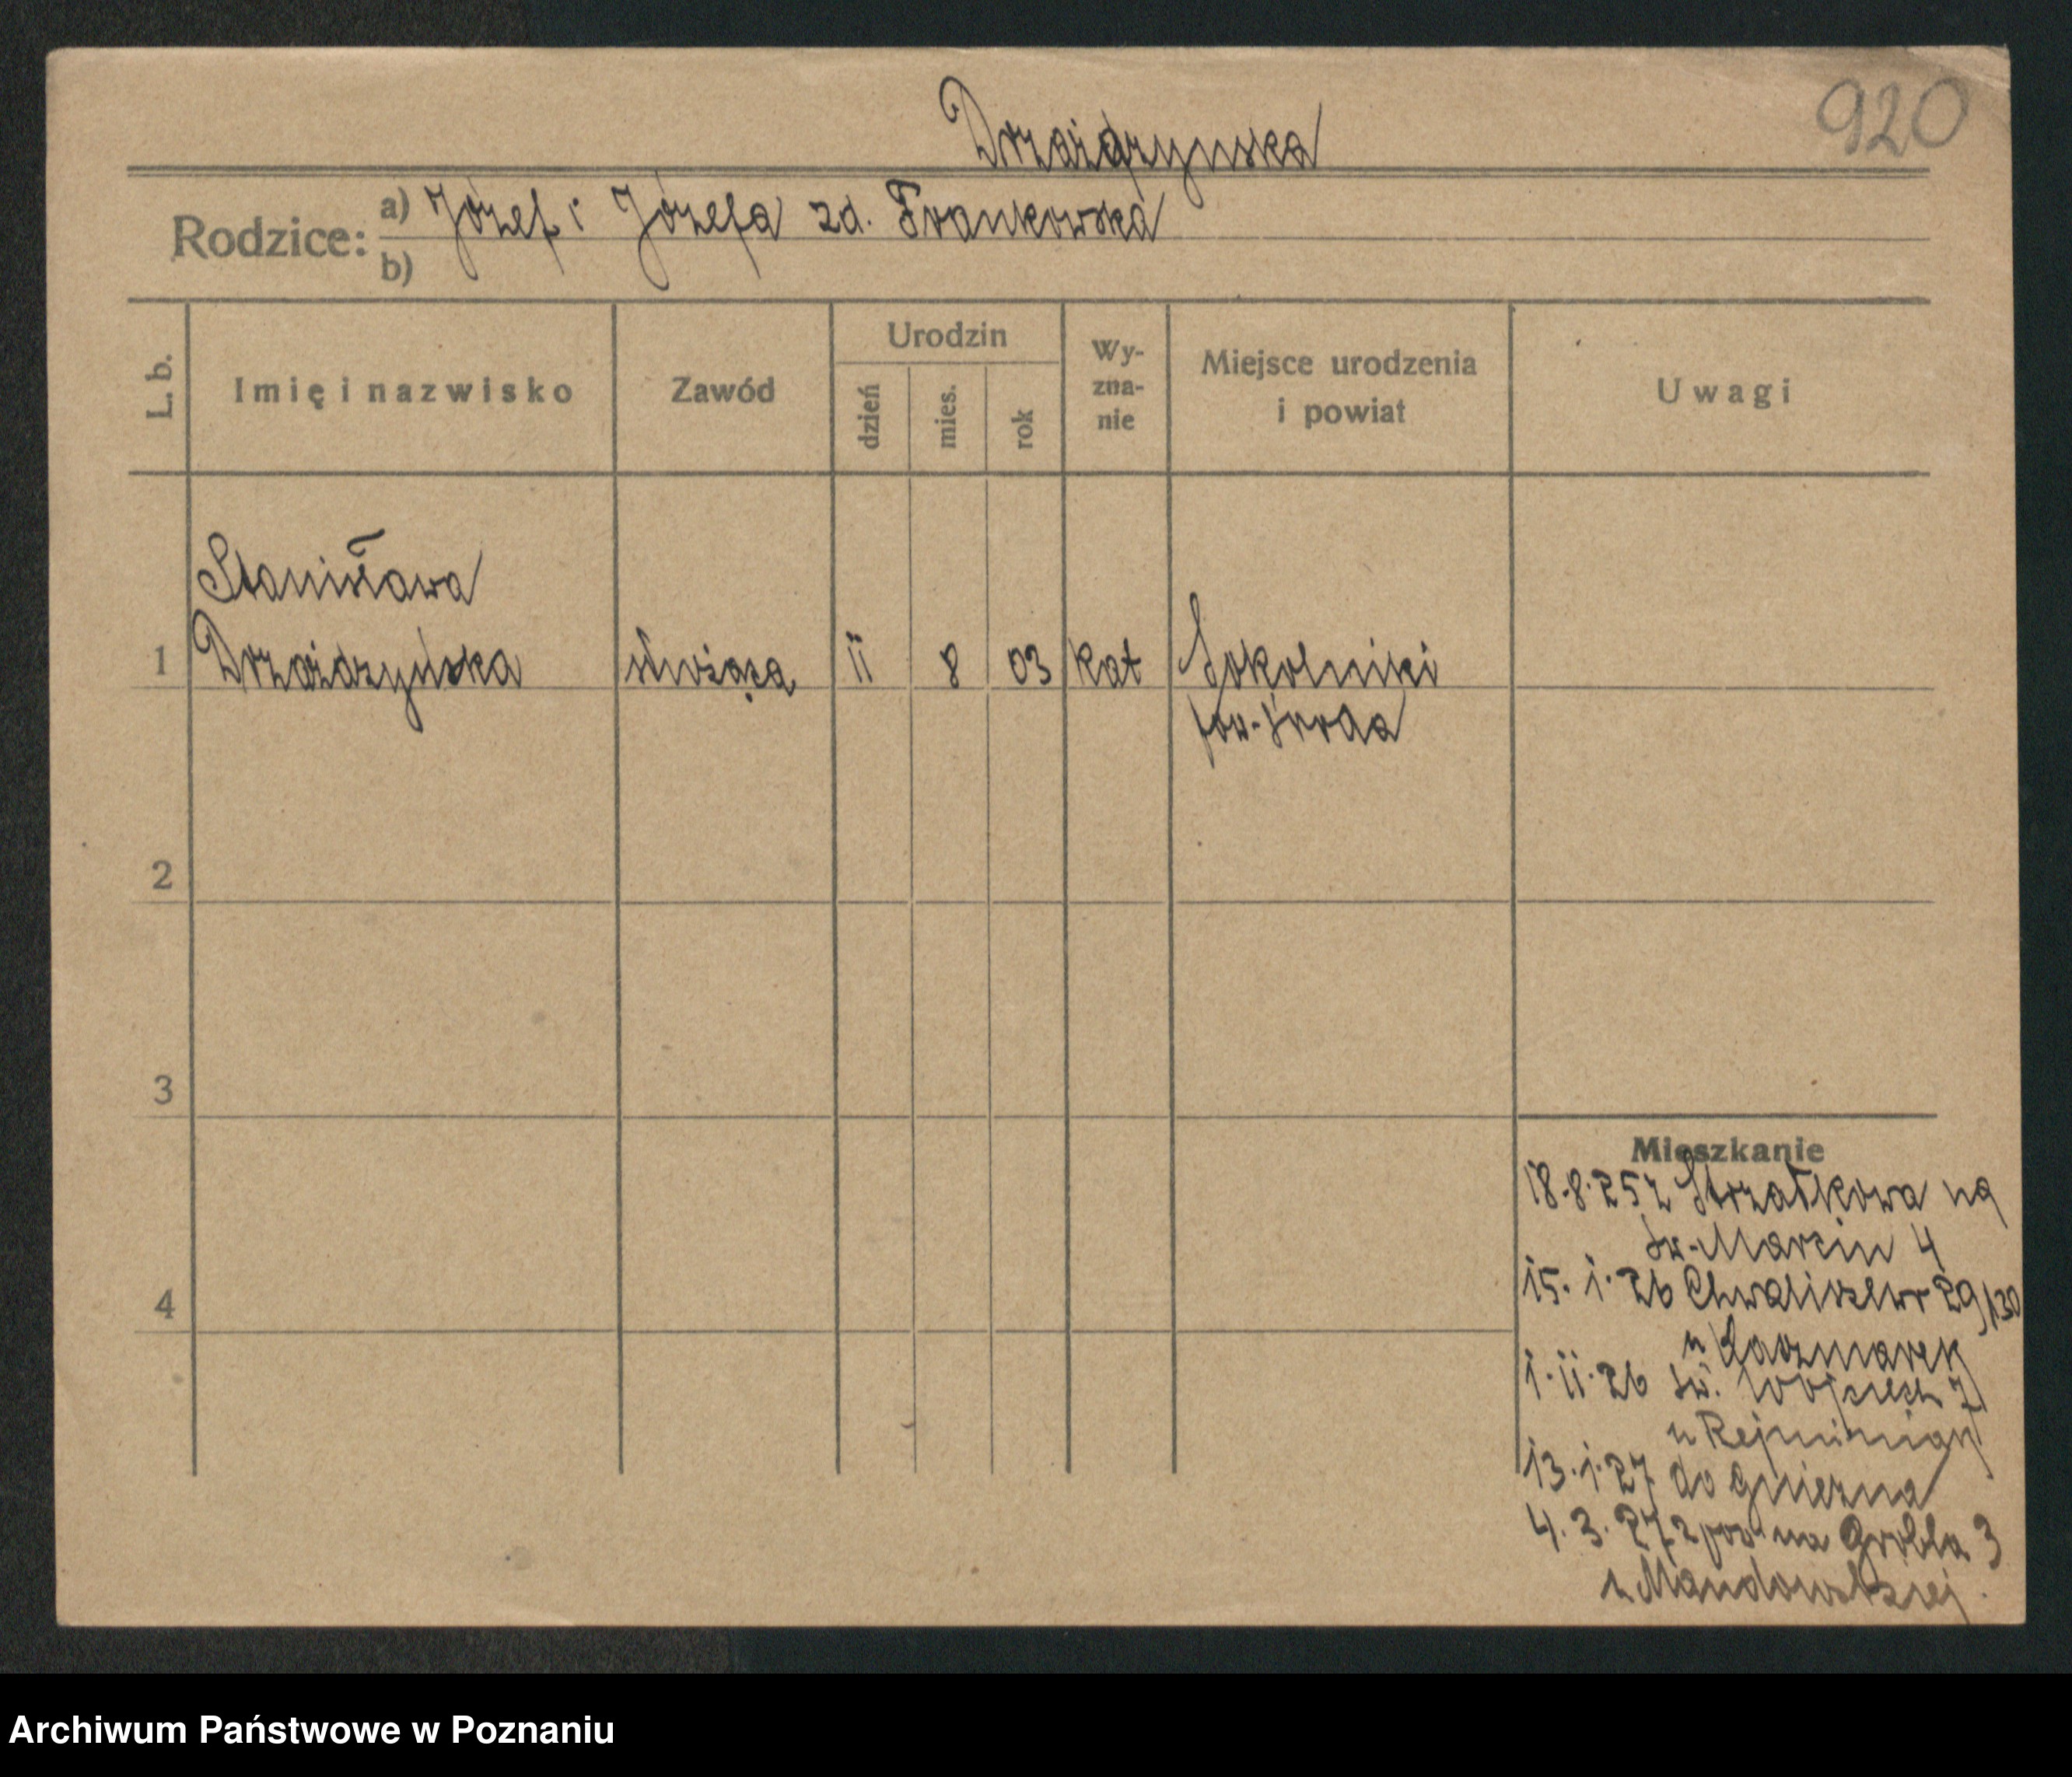 920
Drzażdzyńska
Rodzice: a) Józef i Józefa zd. Frankowska
b)
L. b. Imię i nazwisko Zawód Urodzin dzień mies. rok Wy-zna-nie Miejsce urodzenia i powiat Uwagi
Stanisława
1 Drzażdzyńska służąca 11 8 03 kat Sokolniki
pow. Środa
2
3
Mieszkanie
18.8.25 z Strzałkowa na
Św. Marcin 4
4
15.1.26 Chwaliszewo 29/30
u Kaczmarek
1.11.26 Św. Wojciech
u
13.1.27 do Gniezna
4.3.27 z pow na Grobla 3
u Mandowskiej.
Archiwum Państwowe w Poznaniu